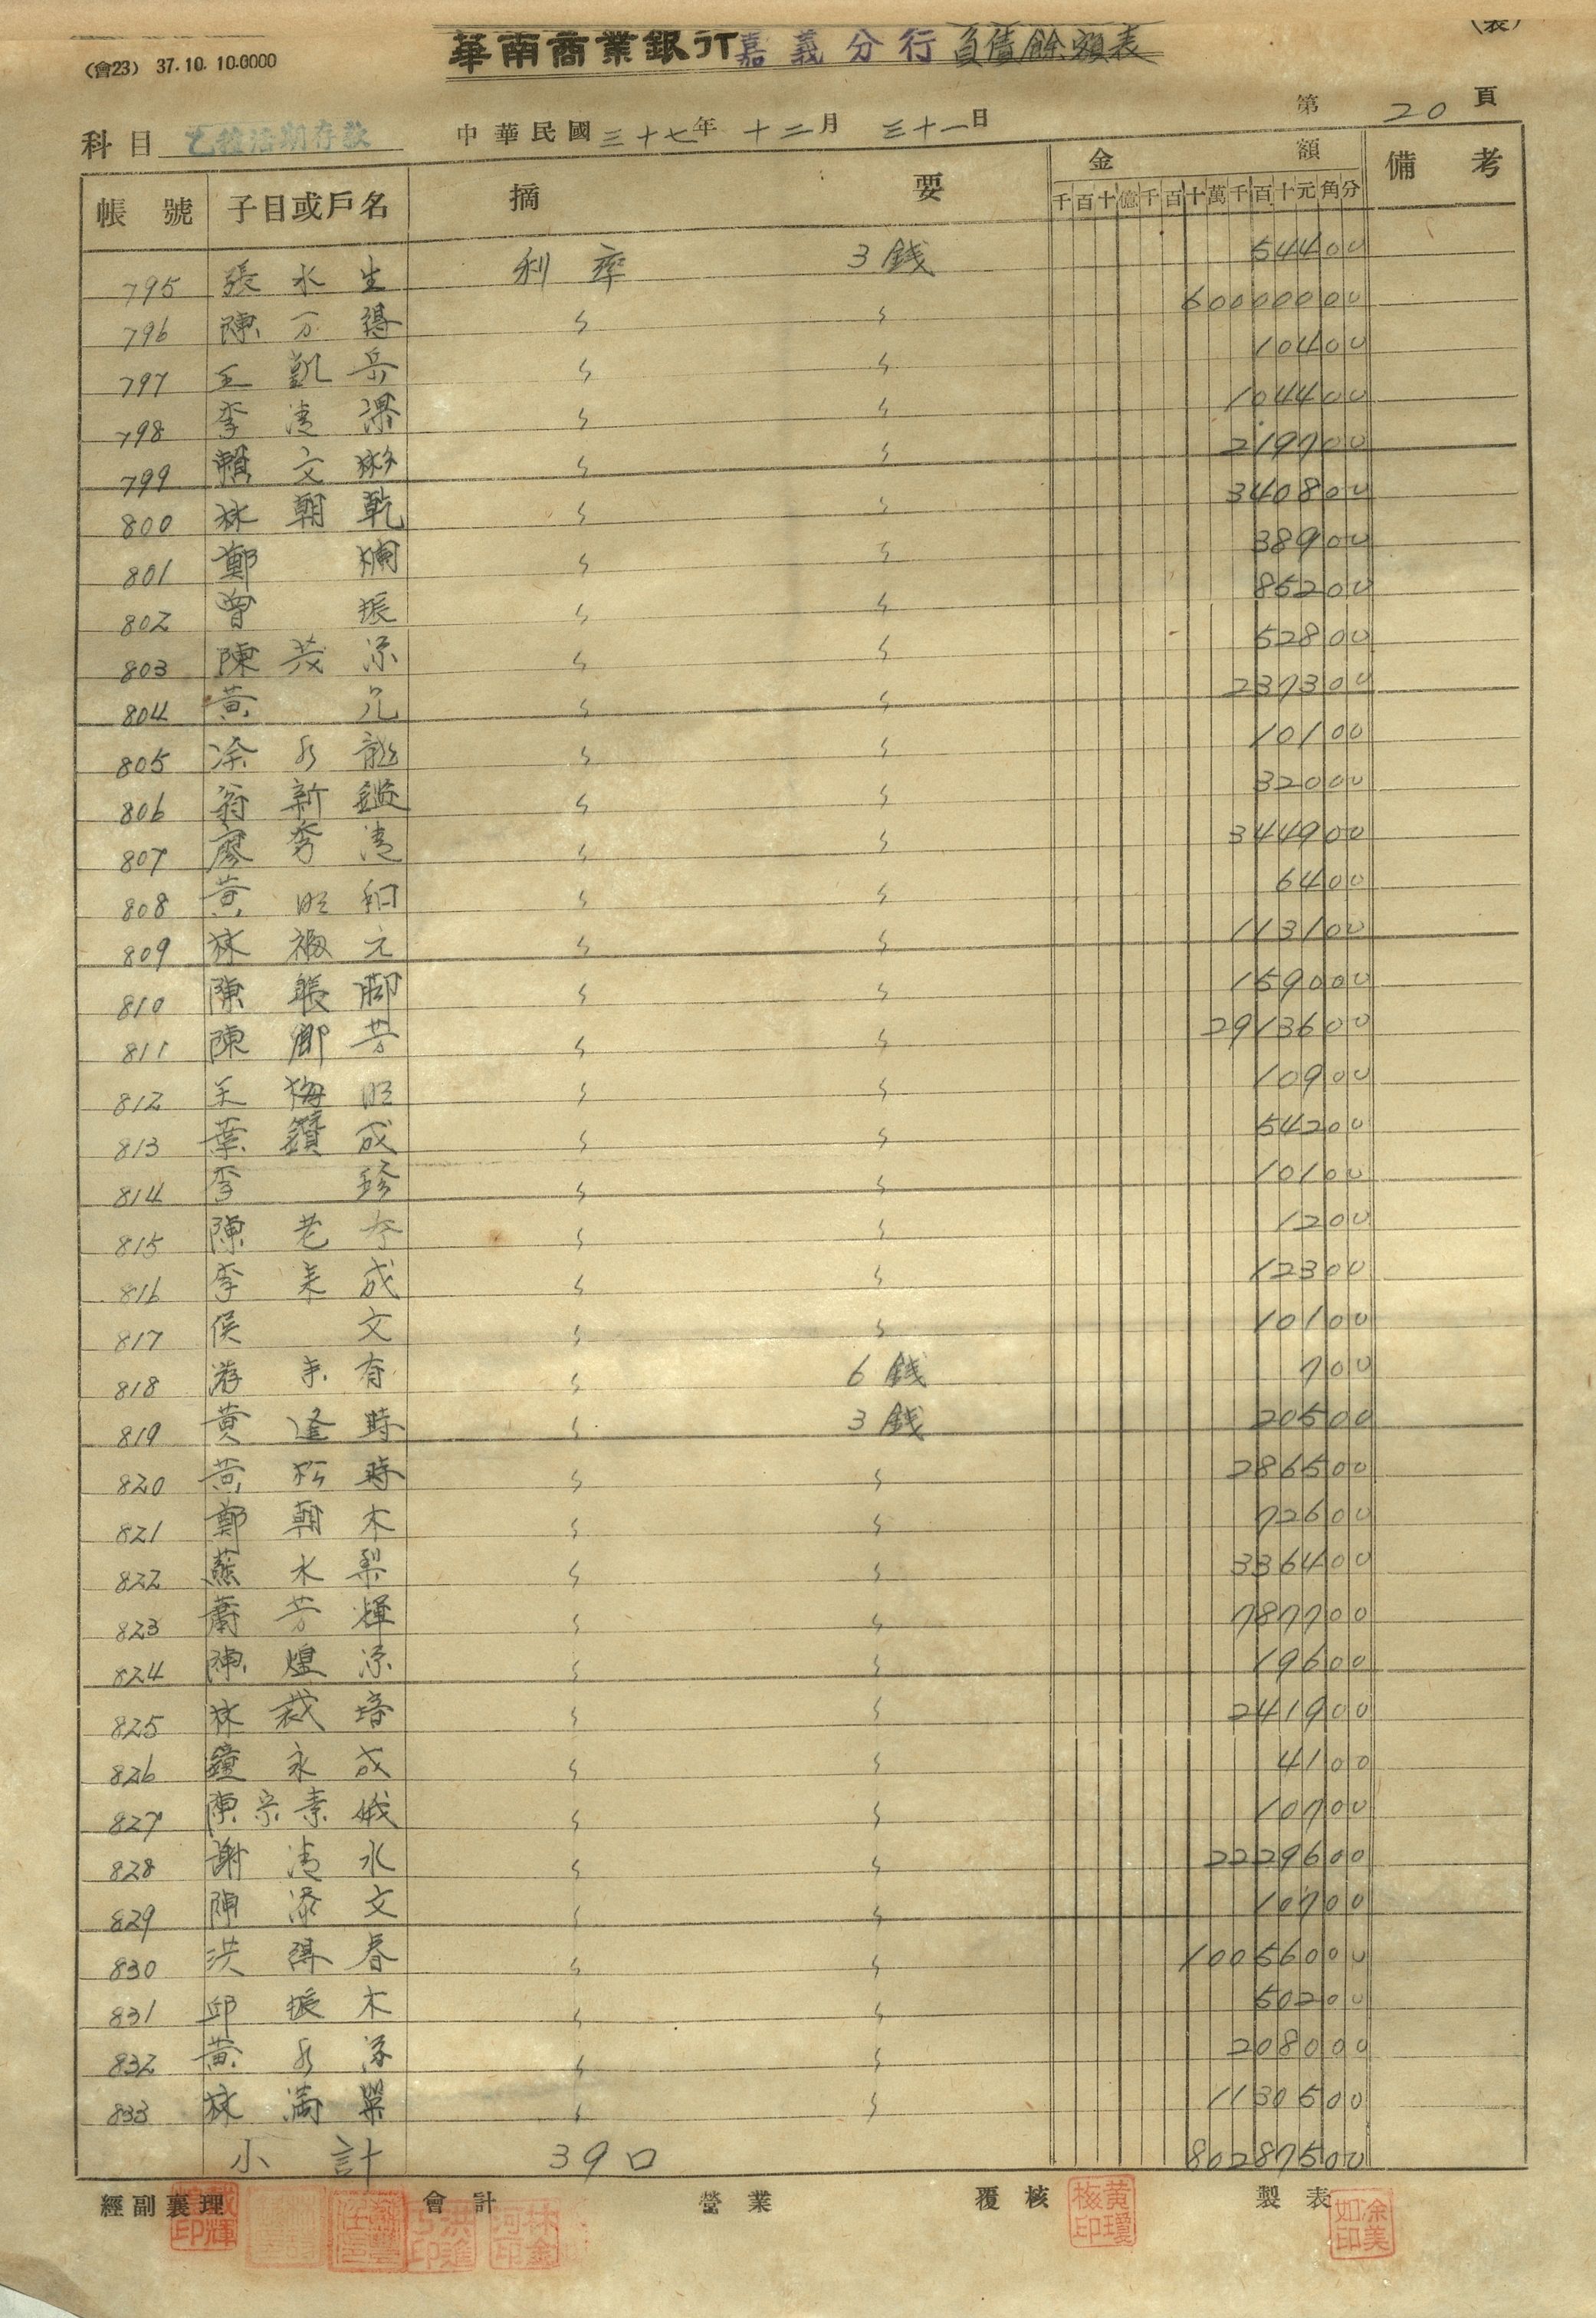 (會23) 37.10.10.0000
華南商業銀行嘉義分行負債餘額表
(表)
科目 乙種活期存款 中華民國三十七年十二月三十一日 第20頁
帳號 子目或戶名 摘要 金額 備考
千百十億千百十萬千百十元角分
795 張水生 利率 3錢 54400
796 陳万得 〃 〃 60000000
797 王凱岳 〃 〃 10400
798 李清 〃 〃 104400
799 賴文彬 〃 〃 219700
800 林朝乾 〃 〃 340800
801 鄭 〃 〃 38900
802 曾振 〃 〃 85200
803 陳茂添 〃 〃 52800
804 黃允 〃 〃 237300
805 涂水龍 〃 〃 10100
806 翁新鑑 〃 〃 32000
807 廖秀清 〃 〃 344900
808 黃旺 〃 〃 6400
809 林福元 〃 〃 113100
810 陳賬腳 〃 〃 159000
811 陳卿芳 〃 〃 2913600
812 王梅旺 〃 〃 10900
813 葉鑽成 〃 〃 54200
814 李珍 〃 〃 10100
815 陳老 〃 〃 1200
816 李来成 〃 〃 12300
817 侯文 〃 〃 10100
818 游有 〃 6錢 700
819 黃逢時 〃 3錢 20500
820 黃松時 〃 〃 286500
821 鄭朝木 〃 〃 72600
822 蘇水梨 〃 〃 336400
823 蕭芳輝 〃 〃 787700
824 陳煌添 〃 〃 19600
825 林裁培 〃 〃 241900
826 鐘永成 〃 〃 4100
827 陳宗素娥 〃 〃 10700
828 謝清水 〃 〃 2229600
829 陳添文 〃 〃 10700
830 洪得春 〃 〃 10056000
831 邱振木 〃 〃 50200
832 黃水添 〃 〃 208000
833 林滿巢 〃 〃 1130500
小計 39口 80287500
經副襄理 會計 營業 覆核 製表
黃瓊核印
涂美如印